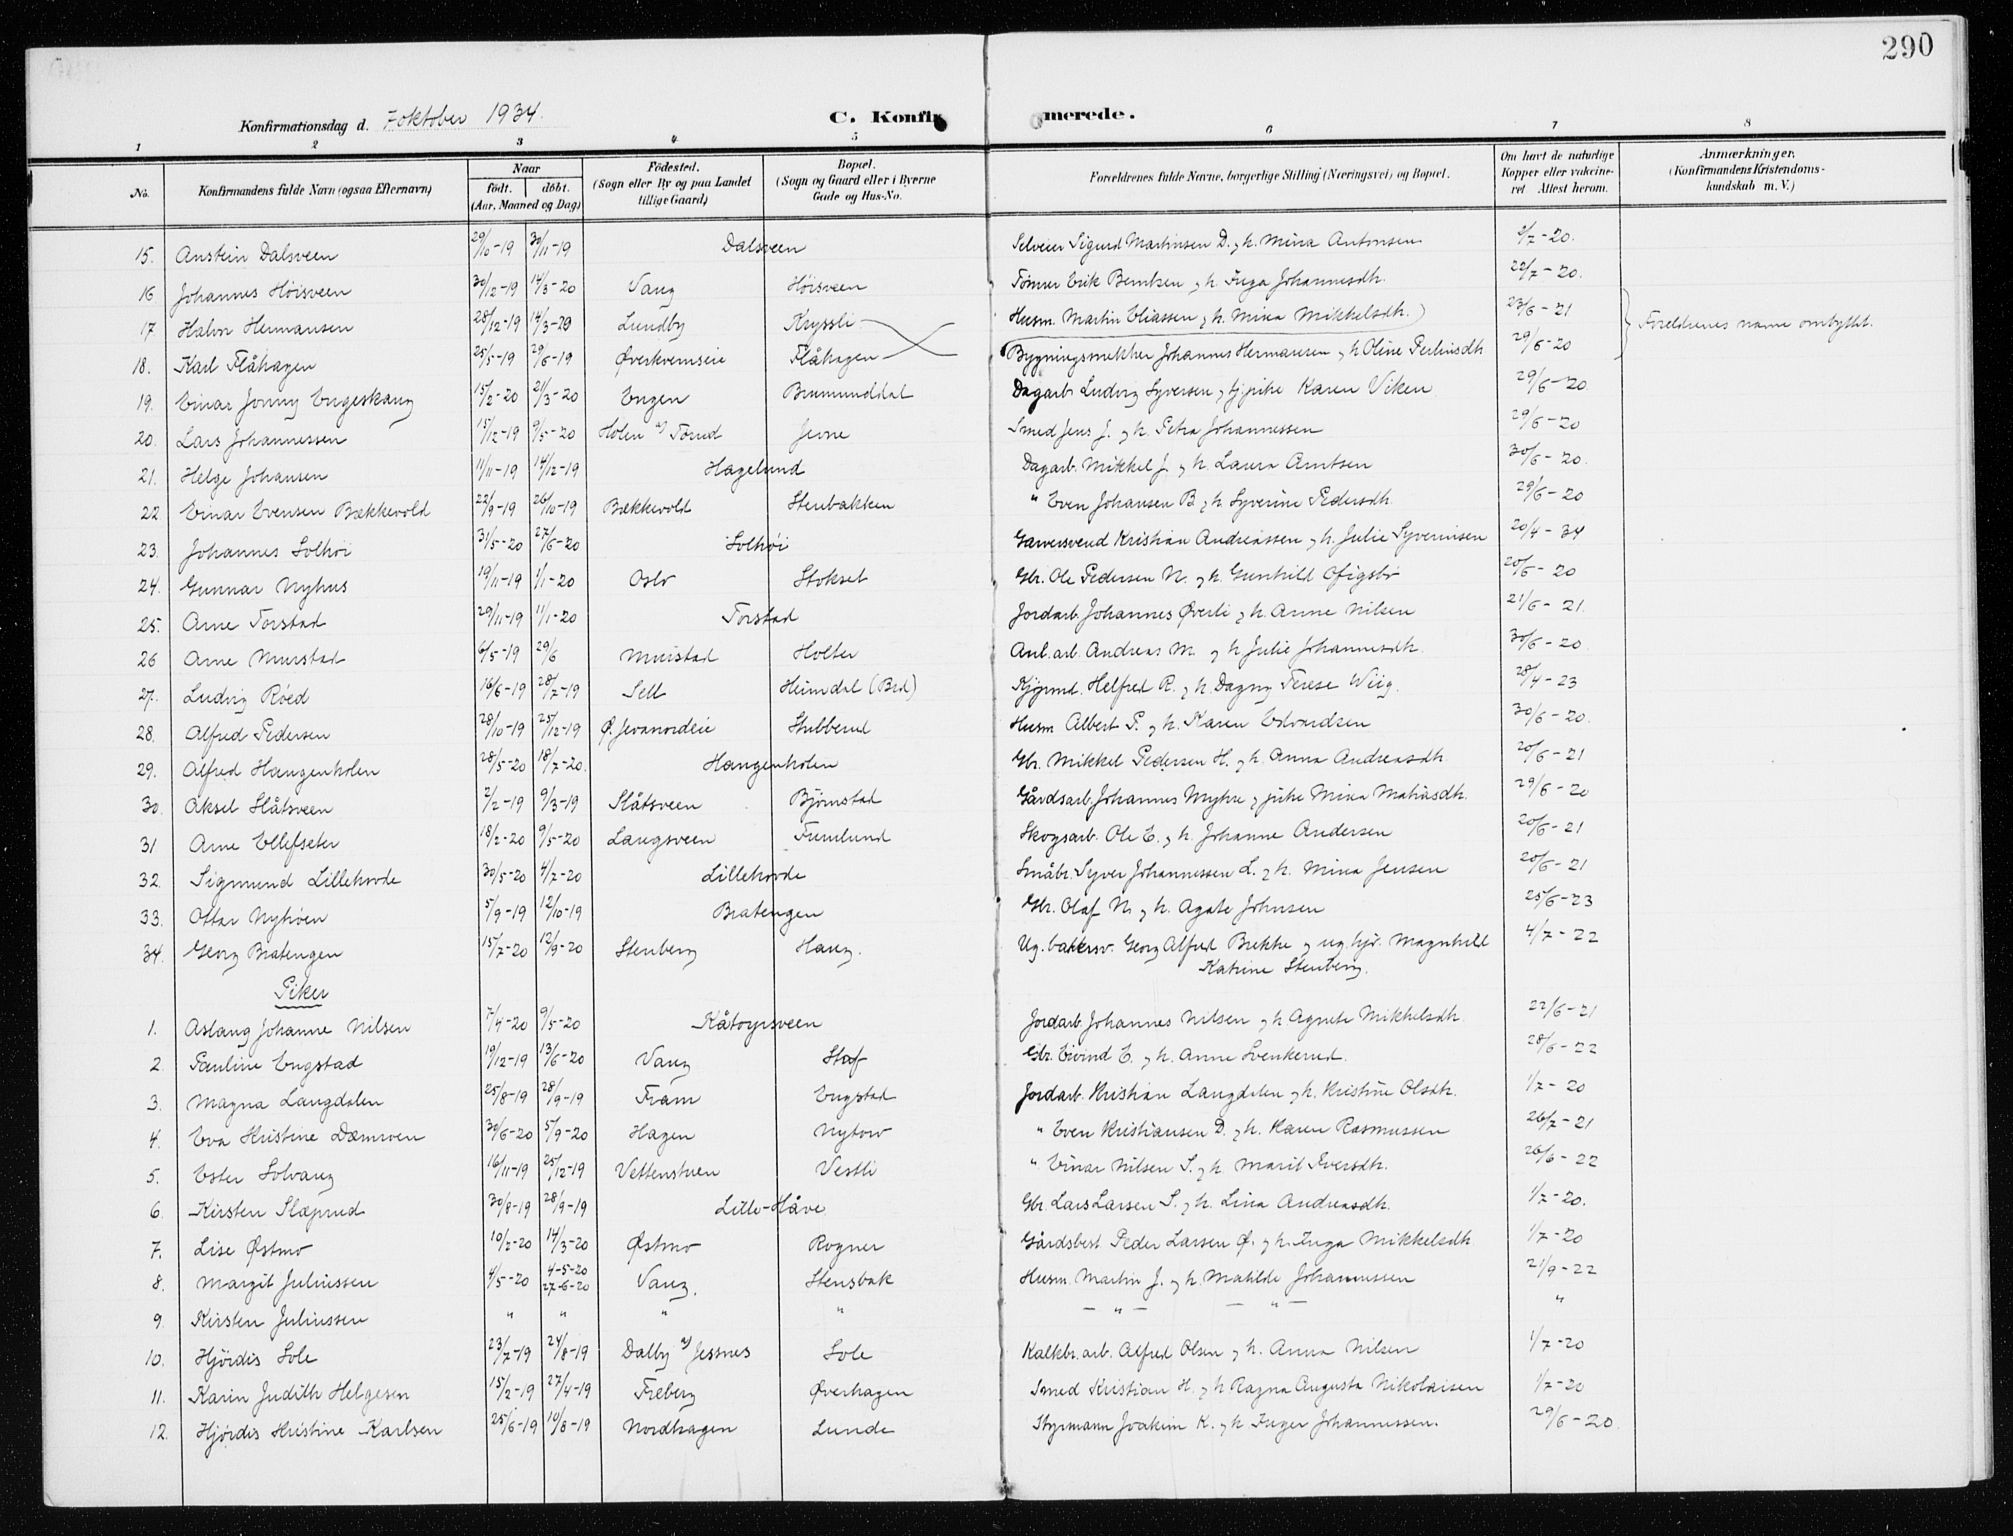 290
Konfirmationsdag d. 7 oktober 1934.
C. Konfir merede.
1 2 3 4 5 6 7 8
No. Konfirmandens fulde Navn (ogsaa Efternavn) Naar født. døbt. (Aar, Maaned og Dag) Fødested. (Sogn eller By og paa Landet tillige Gaard) Bopæl. (Sogn og Gaard eller i Byerne Gade og Hus-No. Forældrenes fulde Navne, borgerlige Stilling (Næringsvei) og Bopæl. Om havt de naturlige Kopper eller vakcineret Attest herom. Anmærkninger. (Konfirmandens Kristendomskundskab m. V.)
15. Anstein Dalsveen 29/10-19 30/11-19 Dalsveen Selveier Sigurd Martinsen D. og h. Mina Antonsen 1/7-20.
16 Johannes Høisveen 30/12-19 14/3-20 Vang Høisveen Tømrer Erik Berntsen og h. Inga Johannesdh. 22/7-20.
17 Halvor Hermansen 28/12-19 14/3-20 Lundby Kryssli Husm. Martin Eliassen og h. Mina Mikkelsdh. 23/6-21 Foreldrenes navne ombyttet.
18. Karl Flåhagen 25/5-19 29/6-19 Øverkvernseie Flåhagen Bygningssnekker Johannes Hermansen og h Oline Perlinsdh 29/6-20
19. Einar Jonny Engeskaug 15/2-20 21/3-20 Engen Brumunddal Dagarb. Ludvig Syversen og tj.pike Karen Viken 29/6-20
20. Lars Johannessen 15/12-19 9/5-20 Holen u/ Torud Jevne Smed Jens J. og h. Petra Johannessen 29/6-20
21. Helge Johansen 11/11-19 14/12-19 Hagelund Dagarb. Mikkel J. og h. Laura Arntsen 30/6-20.
22 Einar Evensen Bækkevold 22/9-19 26/10-19 Bækkevold Stenbakken " Even Johansen B og h Syverine Pedersdh. 29/6-20
23. Johannes Solhøi 31/5-20 27/6-20 Solhøi Garversvend Kristian Andreassen og h. Julie Syverinsen 20/4-34
24. Gunnar Nyhus 19/11-19 1/1-20 Oslo Stokset Gbr. Ole Pedersen N. og h. Gunhild Ofigsbø 20/6-20
25. Arne Torstad 29/11-19 11/1-20 Torstad Jordarb. Johannes Øverli og h. Anne Nilsen 21/6-21.
26 Arne Murstad 6/5-19 29/6 Murstad Holter Anl.arb. Andreas M. og h Julie Johannesdh. 30/6-20.
27. Ludvig Røed 16/6-19 28/7-19 Sell Heimdal (Brd) Kjøpmd. Helfred R. og h. Dagny Terese Wiig. 28/4-23
28. Alfred Pedersen 28/10-19 25/12-19 Ø. Jevanordeie Stubberud Husm Albert P. og h. Karen Edvardsen 30/6-20.
29. Alfred Haugenholen 28/5-20 18/7-20. Haugenholen Gbr. Mikkel Pedersen H. og h. Anna Andreasdh 20/6-21
30. Aksel Slåtsveen 2/2-19 9/3-19 Slåtsveen Bjørnstad Gårdsarb. Johannes Myhre og pike Mina Matiasdh. 29/6-20
31 Arne Ellefseter 18/2-20 9/5-20 Langsveen Furulund Skogsarb. Ole E. og h. Johanne Andersen 20/6-21
32. Sigmund Lillehovde 30/5-20 4/7-20 Lillehovde Småbr. Syver Johannessen L. og h. Mina Jensen 20/6-21
33. Ottar Nyhøen 5/9-19 12/10-19 Bratengen Gbr. Olaf N. og h. Agate Johnsen 25/6-23
34. Georg Bratengen 15/7-20 12/9-20 Stenberg Haug. Ug. bakersv. Georg Alfred Brekke og ug. hjv. Magnhild 4/7-22
Katrine Stenberg.
Piker
1. Aslaug Johanne Nilsen 7/4-20 9/5-20 Kåtorpsveen Jordarb. Johannes Nilsen og h Agnete Mikkelsdh. 22/6-21
2. Pauline Engstad 19/12-19 13/6-20 Vang Staf Gbr. Eivind E. og h. Anne Svenkerud. 28/6-22
3. Magna Langdalen 25/8-19 28/9-19 Fram Engstad Jordarb. Kristian Langdalen og h. Kristine Olsdh. 1/7-20
4. Eva Kristine Dæmoen 30/6-20 5/9-20 Hagen Nytorv " Even Kristiansen D. og h. Karen Rasmussen 26/7-21
5. Ester Solvang 16/11-19 25/12-19 Vettenstuen Vestli " Einar Nilsen S. og h Marit Iversdh. 26/6-22
6. Kirsten Slåprud 30/8-19 28/9-19 Lille-Håve Gbr. Lars Larsen S. og h. Lina Andreasdh. 1/7-20.
7. Lise Østmo 10/2-20 14/3-20 Østmo Rogner Gårdsbest. Peder Larsen Ø. og h. Inga Mikkelsdh 1/7-20
8. Margit Juliussen 4/5-20 4-5-20 27-6-20 Vang. Stensbak Husm. Martin J. og h. Matilde Johannessen 21/9-22
9. Kirsten Juliussen " " " " - " - - " - "
10. Hjørdis Sole 23/7-19 24/8-19 Dalby u/ Jessnes Sole Kalkbr.arb. Alfred Olsen og h. Anna Nilsen 1/7-20
11. Karin Judith Helgesen 15/2-19 27/4-19 Freberg Øverhagen Smed Kristian H. og h Ragna Augusta Nikolaisen 1/7-20
12. Hjørdis Kristine Karlsen 25/6-19 10/8-19 Nordhagen Lunde Styrmann Joakim K. og h Inger Johannessen. 29/6-20.